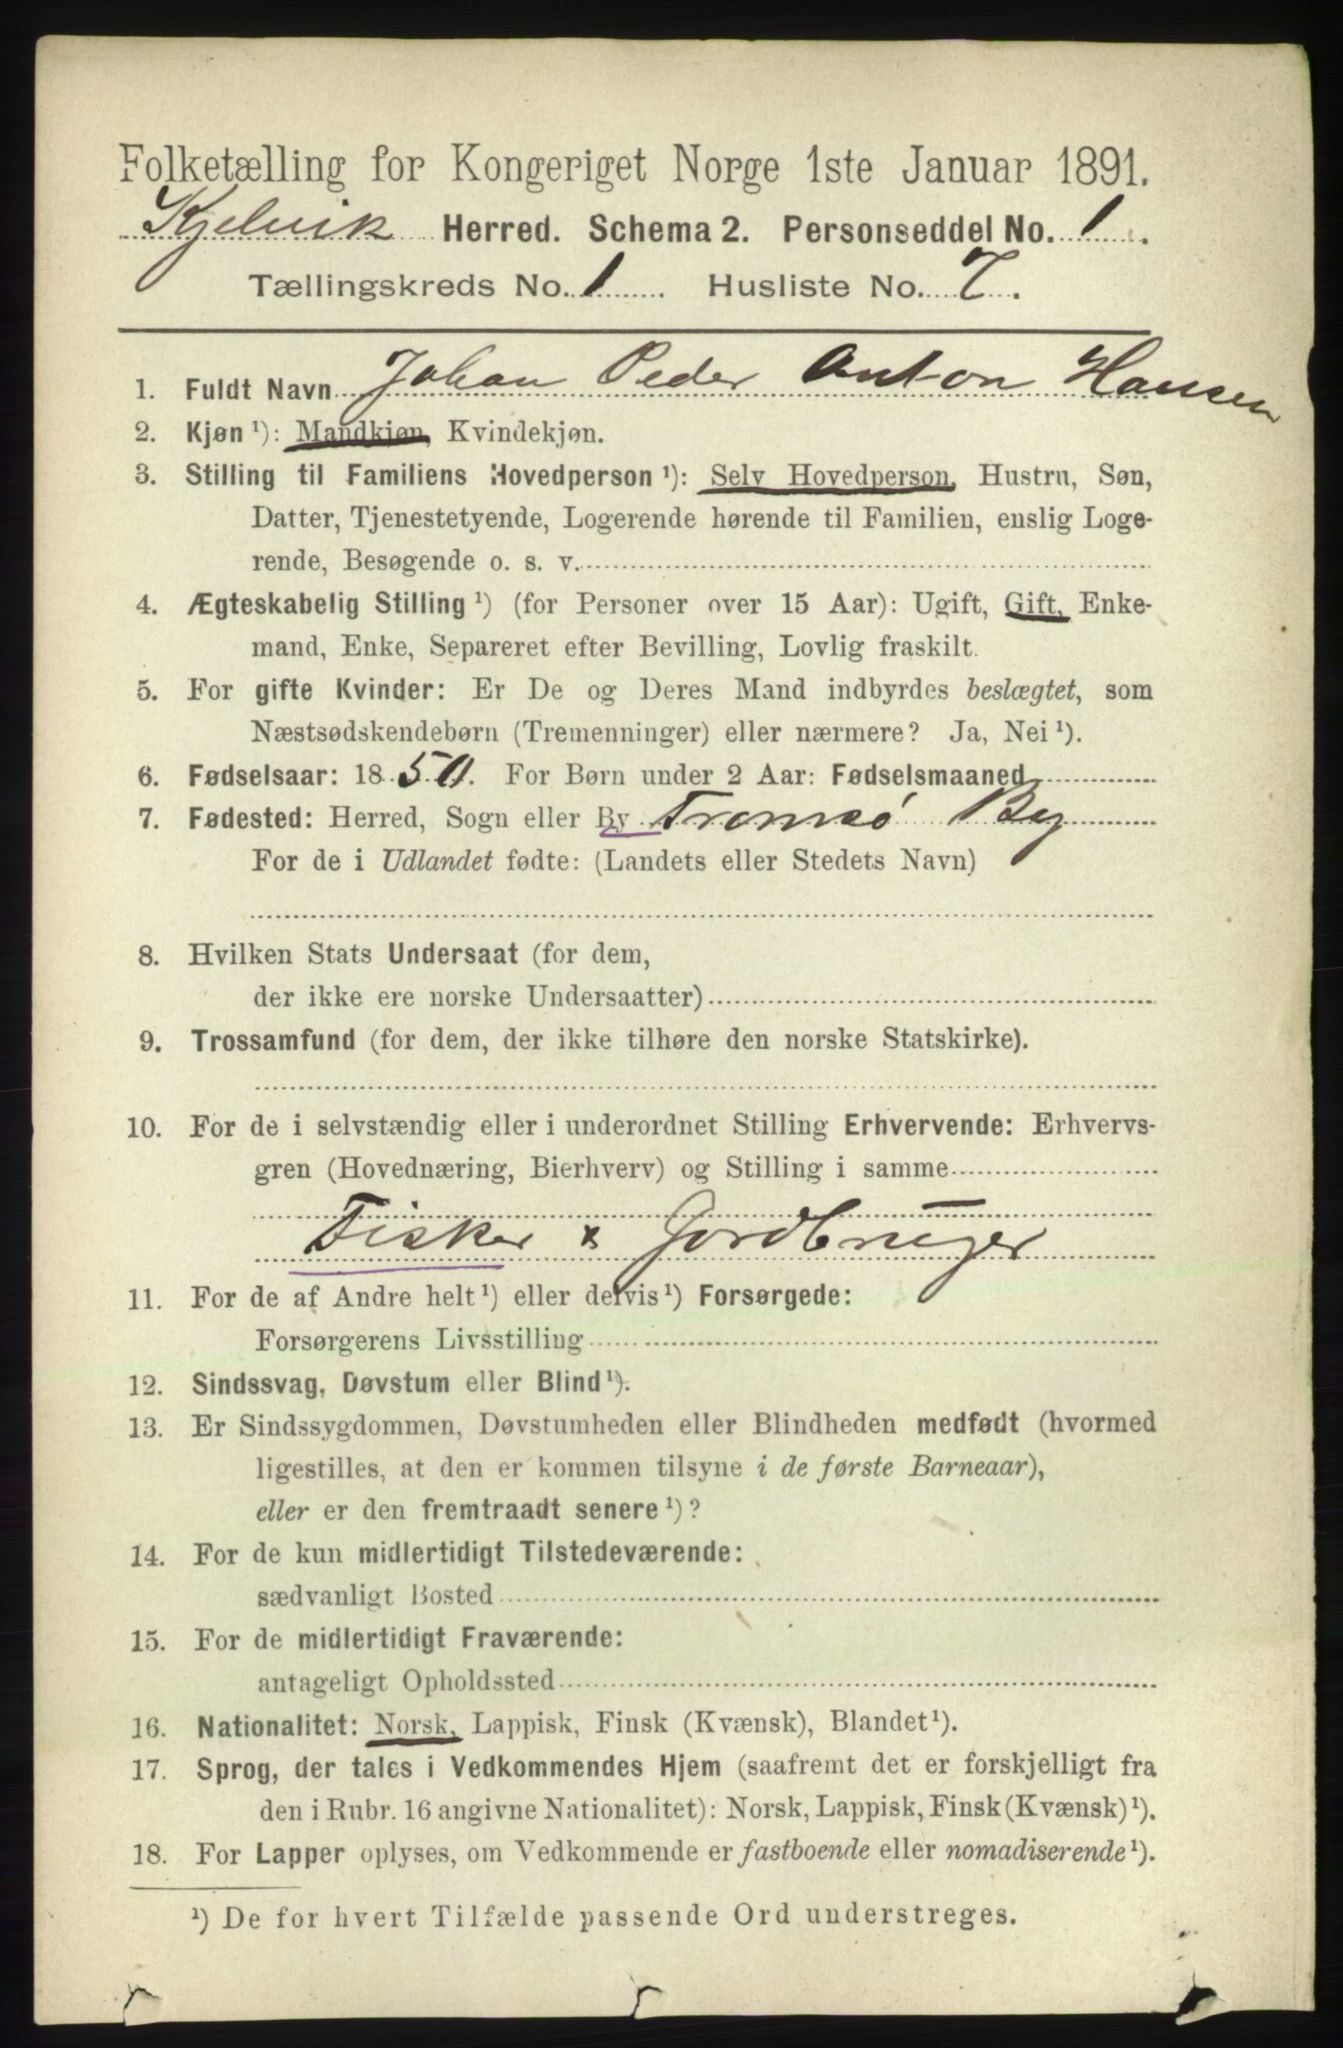 Folketælling for Kongeriget Norge 1ste Januar 1891.
Kjelvik Herred. Schema 2. Personseddel No. 1.
Tællingskreds No. 1 Husliste No. 7.
1. Fuldt Navn Johan Peder Anton Hansen
2. Kjøn ¹): Mandkjøn, Kvindekjøn.
3. Stilling til Familiens Hovedperson ¹): Selv Hovedperson, Hustru, Søn,
Datter, Tjenestetyende, Logerende hørende til Familien, enslig Loge-
rende, Besøgende o. s. v.
4. Ægteskabelig Stilling ¹) (for Personer over 15 Aar): Ugift, Gift, Enke-
mand, Enke, Separeret efter Bevilling, Lovlig fraskilt.
5. For gifte Kvinder: Er De og Deres Mand indbyrdes beslægtet, som
Næstsødskendebørn (Tremenninger) eller nærmere? Ja, Nei ¹).
6. Fødselsaar: 1850. For Børn under 2 Aar: Fødselsmaaned
7. Fødested: Herred, Sogn eller By Tromsø By
For de i Udlandet fødte: (Landets eller Stedets Navn)
8. Hvilken Stats Undersaat (for dem,
der ikke ere norske Undersaatter)
9. Trossamfund (for dem, der ikke tilhøre den norske Statskirke).
10. For de i selvstændig eller i underordnet Stilling Erhvervende: Erhvervs-
gren (Hovednæring, Bierhverv) og Stilling i samme
Fisker & Jordbruger
11. For de af Andre helt ¹) eller delvis ¹) Forsørgede:
Forsørgerens Livsstilling
12. Sindssvag, Døvstum eller Blind ¹).
13. Er Sindssygdommen, Døvstumheden eller Blindheden medfødt (hvormed
ligestilles, at den er kommen tilsyne i de første Barneaar),
eller er den fremtraadt senere ¹)?
14. For de kun midlertidigt Tilstedeværende:
sædvanligt Bosted
15. For de midlertidigt Fraværende:
antageligt Opholdssted
16. Nationalitet: Norsk, Lappisk, Finsk (Kvænsk), Blandet ¹).
17. Sprog, der tales i Vedkommendes Hjem (saafremt det er forskjelligt fra
den i Rubr. 16 angivne Nationalitet): Norsk, Lappisk, Finsk (Kvænsk) ¹).
18. For Lapper oplyses, om Vedkommende er fastboende eller nomadiserende ¹).
¹) De for hvert Tilfælde passende Ord understreges.